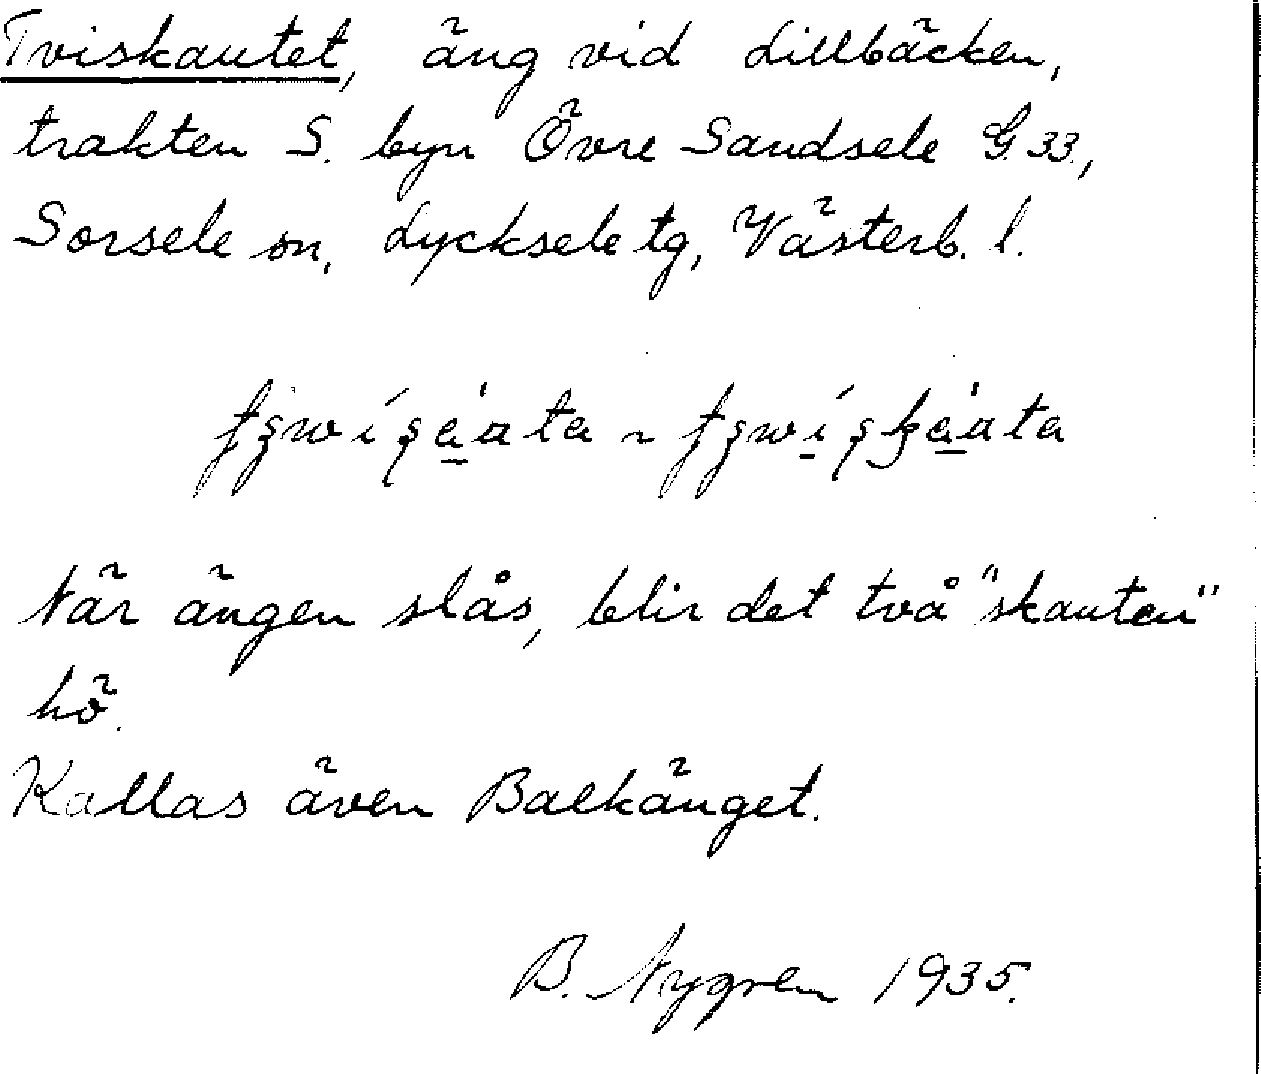 Tviskautet, äng vid Lillbäcken,
trakten S. byn Övre Sandsele G.33.,
Sorsele sn, Lycksele tg, Västerb. l.
När ängen slås, blir det två "skauten"
hö.
Kallas även Balkänget.
B. Nygren 1935.